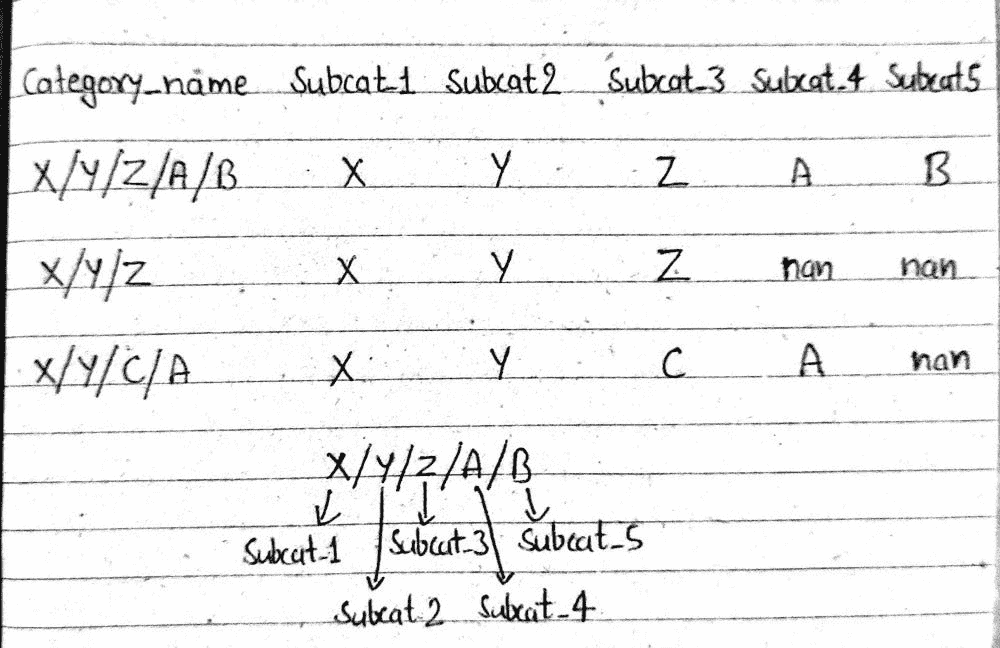 Category_name Subcat_1 Subcat2 Subcat_3 Subcat_4 Subcat5
X/Y/Z/A/B X Y Z A B
X/Y/Z X Y Z nan nan
X/Y/C/A X Y C A nan
X/Y/Z/A/B
Subcat_1 Subcat_3 Subcat_5
Subcat_2 Subcat_4